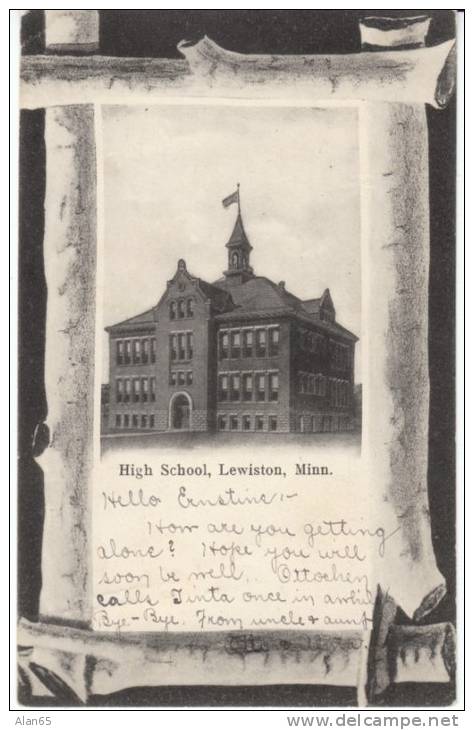 High School, Lewiston, Minn.
Hello Ernstine :-
How are you getting
alone? Hope you will
soon be well. Ottochen
calls Tinta once in awhil
Bye-Bye. From uncle & aunt
Alan65
http://www.delcampe.net